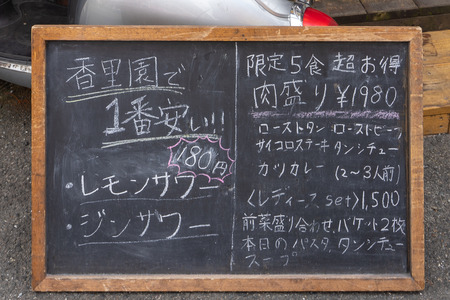 香里園で
1番安い!!!
180円
・レモンサワー
・ジンサワー
限定5食 超お得
肉盛り ¥1980
ローストタン ローストビーフ
サイコロステーキ タンシチュー
カツカレー (2〜3人前)
〈レディース set〉1,500
前菜盛り合わせ、バケット2枚
本日のパスタ、タンシチュー
スープ